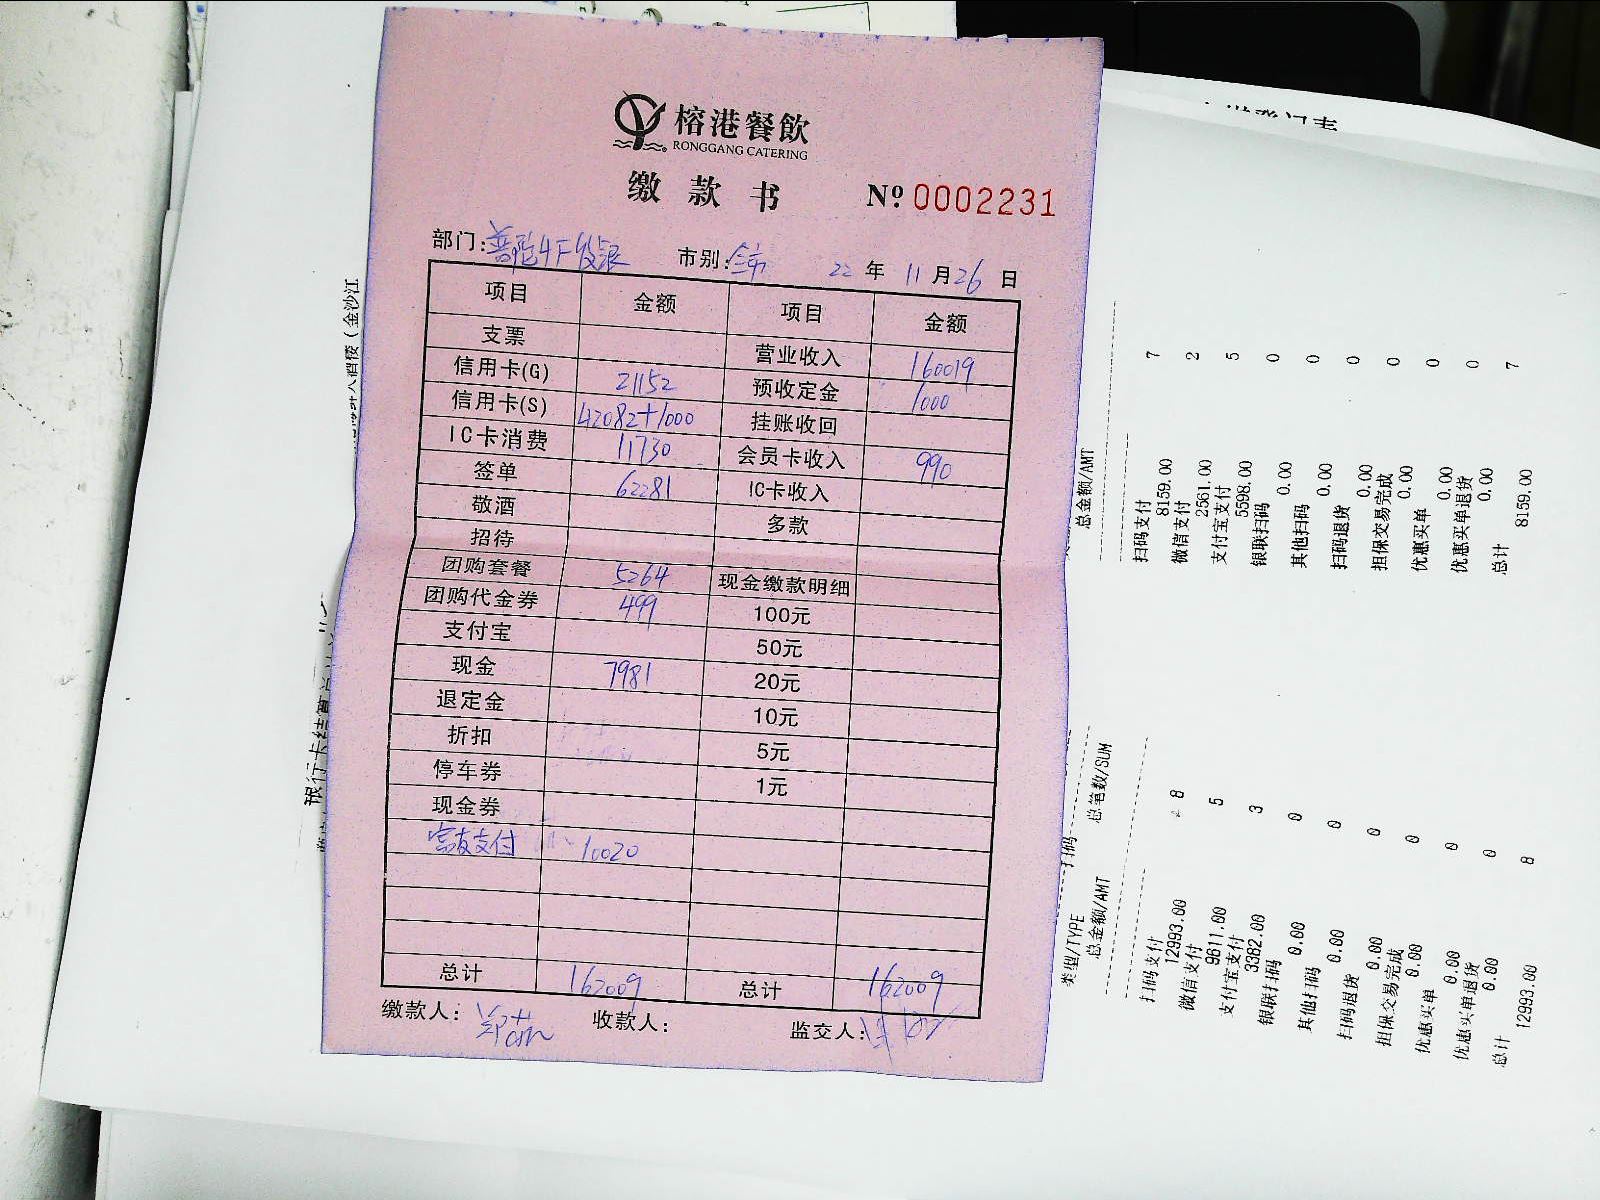 榕港餐飲
RONGGANG CATERING
缴款书 Nº 0002231
部门:普陀4F收银 市别:全市 22年11月26日
项目 金额 项目 金额
支票 营业收入 160019
信用卡(G) 21152 预收定金 1000
信用卡(S) 42082+1000 挂账收回
IC卡消费 11730 会员卡收入 990
签单 62281 IC卡收入
敬酒 多款
招待
团购套餐 5264 现金缴款明细
团购代金券 499 100元
支付宝 50元
现金 7981 20元
退定金 10元
折扣 5元
停车券 1元
现金券
支付 10020
总计 162009 总计 162009
缴款人: 收款人: 监交人:
总金额/AMT
扫码支付 7
8159.00
微信支付 2
2561.00
支付宝支付 5
5598.00
银联扫码 0
0.00
其他扫码 0
0.00
扫码退货 0
0.00
担保交易完成 0
0.00
优惠买单 0
0.00
优惠买单退货 0
0.00
总计 7
8159.00
类型/TYPE 总笔数/SUM
总金额/AMT
扫码支付 8
12993.00
微信支付 5
9611.00
支付宝支付 3
3382.00
银联扫码 0
0.00
其他扫码 0
0.00
扫码退货 0
0.00
担保交易完成 0
0.00
优惠买单 0
0.00
优惠买单退货 0
0.00
总计 8
12993.00
(金沙江